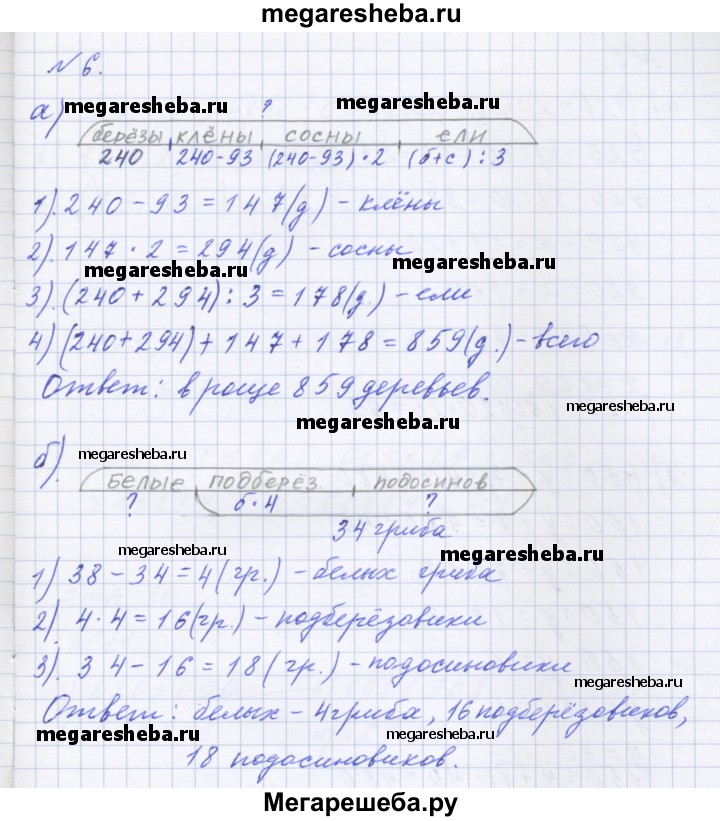 megaresheba.ru
№ 6.
а) megaresheba.ru ? megaresheba.ru
берёзы клёны сосны ели
240 240-93 (240-93)·2 (б+с):3
1). 240 - 93 = 147(д) - клёны
2). 147 · 2 = 294(д) - сосны
megaresheba.ru megaresheba.ru
3). (240 + 294) : 3 = 178(д.) - ели
4) (240+294) + 147 + 178 = 859(д.) - всего
Ответ: в роще 859 деревьев.
megaresheba.ru megaresheba.ru
б). megaresheba.ru
белые подберёз подосинов
? б·4 ?
34 гриба
megaresheba.ru megaresheba.ru
1) 38 - 34 = 4(гр.) - белых гриба
2) 4 · 4 = 16(гр.) - подберёзовики
3). 34 - 16 = 18(гр.) - подосиновики
megaresheba.ru
Ответ: белых - 4 гриба, 16 подберёзовиков,
megaresheba.ru megaresheba.ru
18 подосиновиков.
Мегарешеба.ру